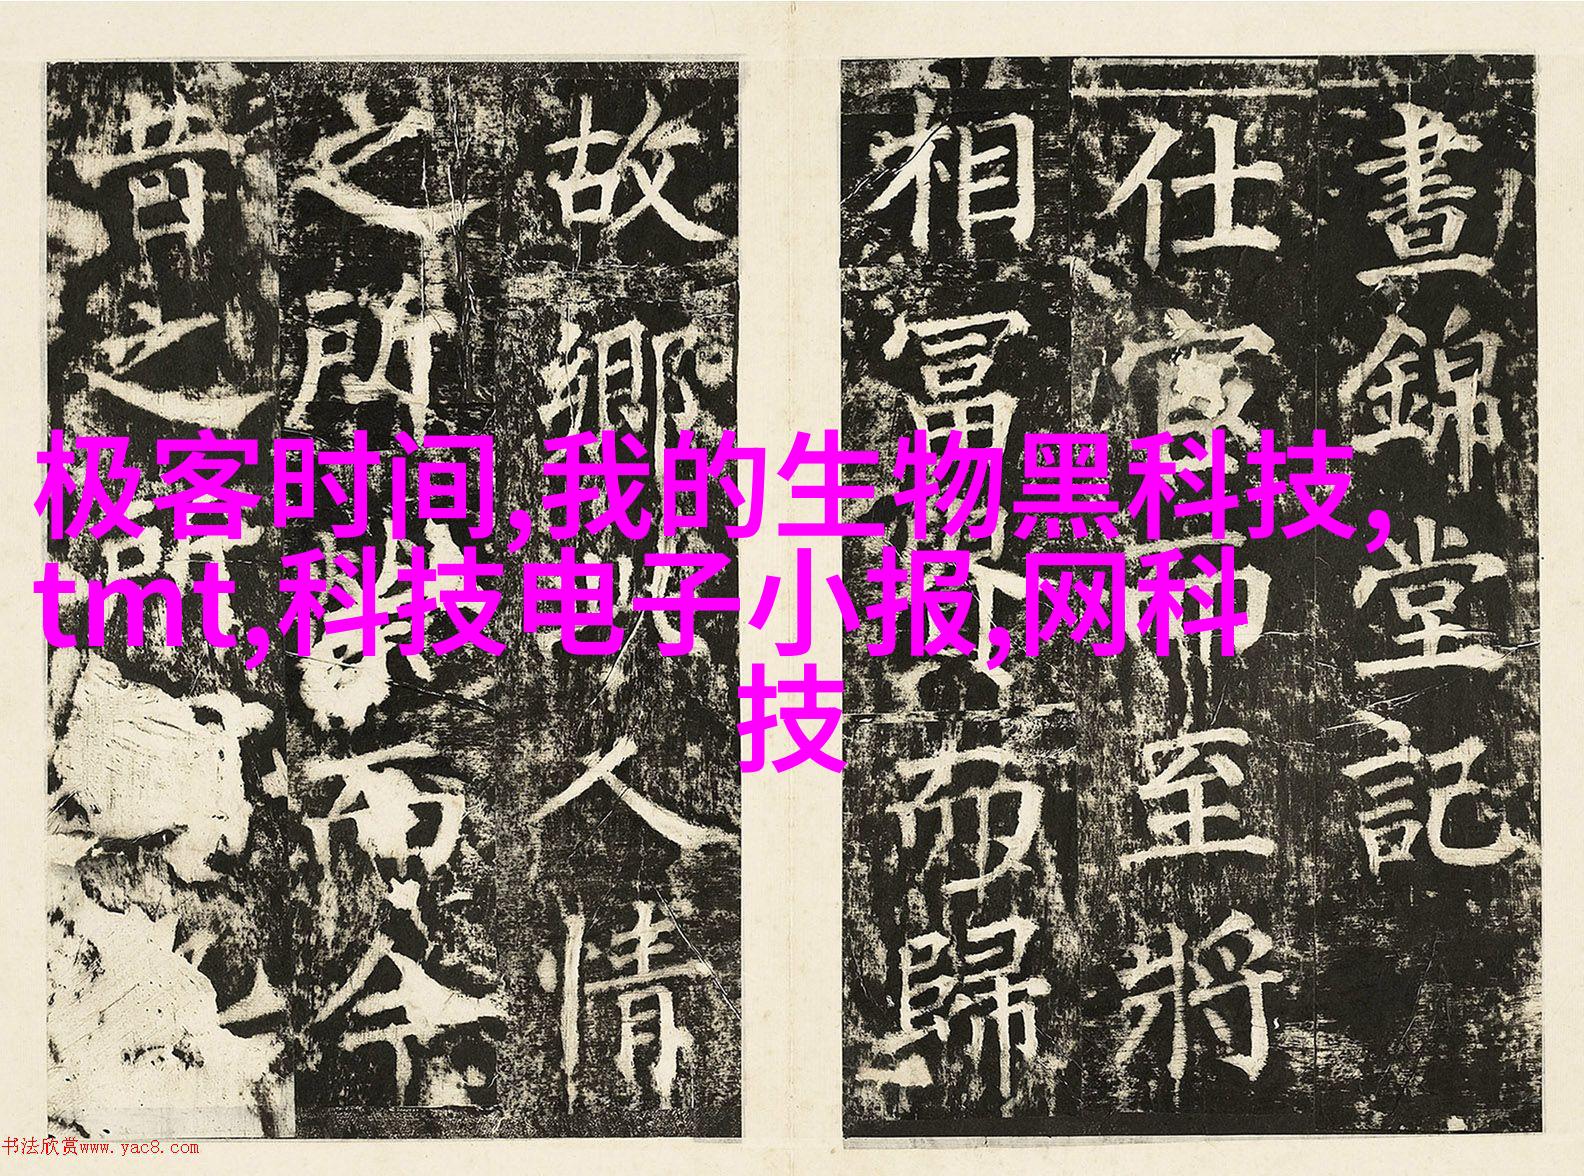 晝錦堂記
仕宦而至將
相冨貴而歸
故鄉此人情
之所榮而今
昔之所
极客时间,我的生物黑科技,
tmt,科技电子小报,网科
技
书法欣赏www.yac8.com